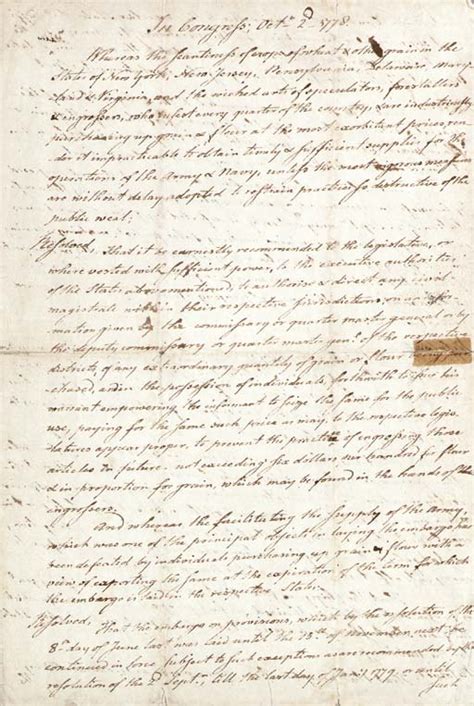 In Congress, Octr. 2d 1778.
Whereas the scantiness of crops of wheat & other grain in the
States of New York, New Jersey, Pennsylvania, Delaware, Mary
land & Virginia, and the wicked arts of speculators, forestallers
& engrossers, who infest every quarter of the country, & are industriously
purchasing up grain & flour at the most exorbitant prices, ren
der it impracticable to obtain timely & sufficient supplies for the
operations of the Army & Navy, unless the most vigorous measures
are without delay adopted to restrain practices so destructive of the
public weal;
Resolved, That it be earnestly recommended to the legislative, or
where vested with sufficient power, to the executive authorities
of the States abovementioned to authorise & direct any civil
magistrate within their respective jurisdictions, on infor
mation given by the commissary or quarter master general or by
the deputy commissary or quarter master genl. of the respective
districts of any extraordinary quantity of grain or flour
chased, and in the possession of individuals, forthwith to issue his
warrant empowering the informant to seize the same for the public
use, paying for the same such price as may, to the respective legis
latures appear proper, to prevent the practice of engrossing those
articles in future not exceeding six dollars per hundred for flour
& in proportion for grain, which may be found in the hands of the
engrossers.
And whereas the facilitating the supply of the Army,
which was one of the principal objects in laying the embargo has
been defeated by individuals purchasing up grain & flour with a
view of exporting the same at the expiration of the term for which
the embargo is laid in the respective States.
Resolved, That the embargo on provisions, which by the resolution of the
8th. day of June last was laid until the 15th of November next, be
continued in force subject to such exceptions as are recommended by the
resolution of the 2d Septr., till the last day of Jany. 1779, or until
Such